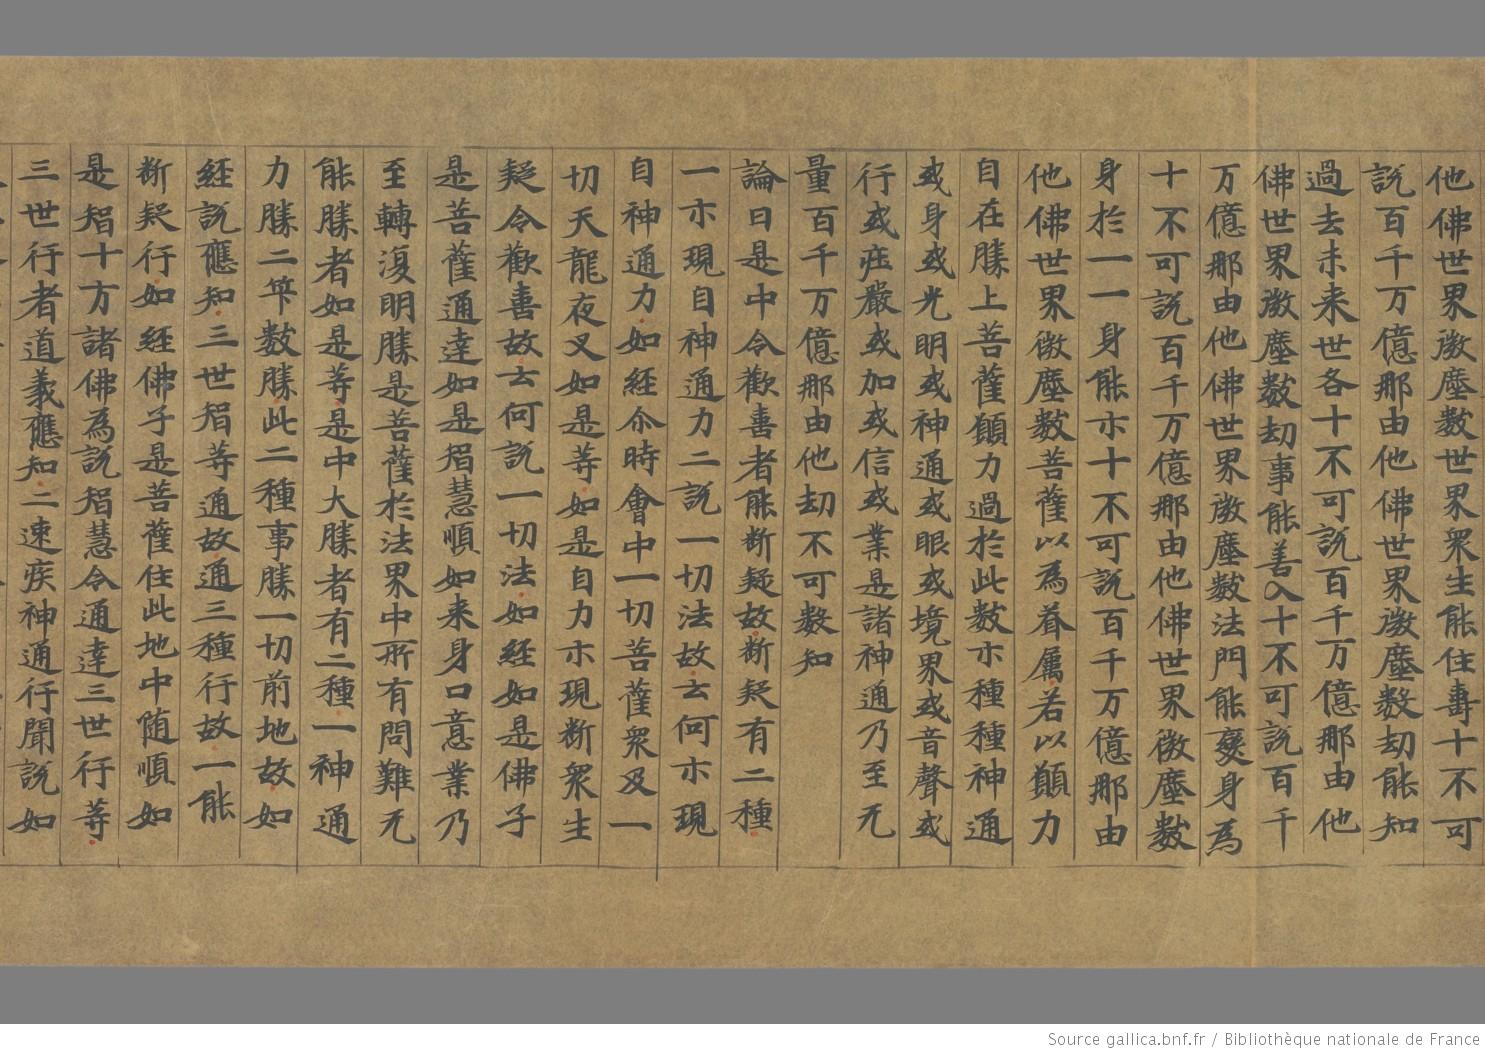 他佛世界微塵數世界眾生能住壽十不可
說百千万億那由他佛世界微塵數劫能知
過去未来世各十不可說百千万億那由他
佛世界微塵數劫事能善入十不可說百千
万億那由他佛世界微塵數法門能變身為
十不可說百千万億那由他佛世界微塵數
身於一一身能示十不可說百千万億那由
他佛世界微塵數菩薩以為眷属若以願力
自在勝上菩薩願力過於此數示種種神通
或身或光明或神通或眼或境界或音聲或
行或莊嚴或加或信或業是諸神通乃至无
量百千万億那由他劫不可數知
論曰是中令歡喜者能断疑故断疑有二種
一示現自神通力二說一切法故云何示現
自神通力如經尒時會中一切菩薩眾及一
切天龍夜叉如是等如是自力示現断眾生
疑令歡喜故云何說一切法如經如是佛子
是菩薩通達如是智慧順如来身口意業乃
至轉復明勝是菩薩於法界中所有問難无
能勝者如是等是中大勝者有二種一神通
力勝二筭數勝此二種事勝一切前地故如
經說應知三世智等通故通三種行故一能
断疑行如經佛子是菩薩住此地中随順如
是智十方諸佛為說智慧令通達三世行等
三世行者道義應知二速疾神通行聞說如